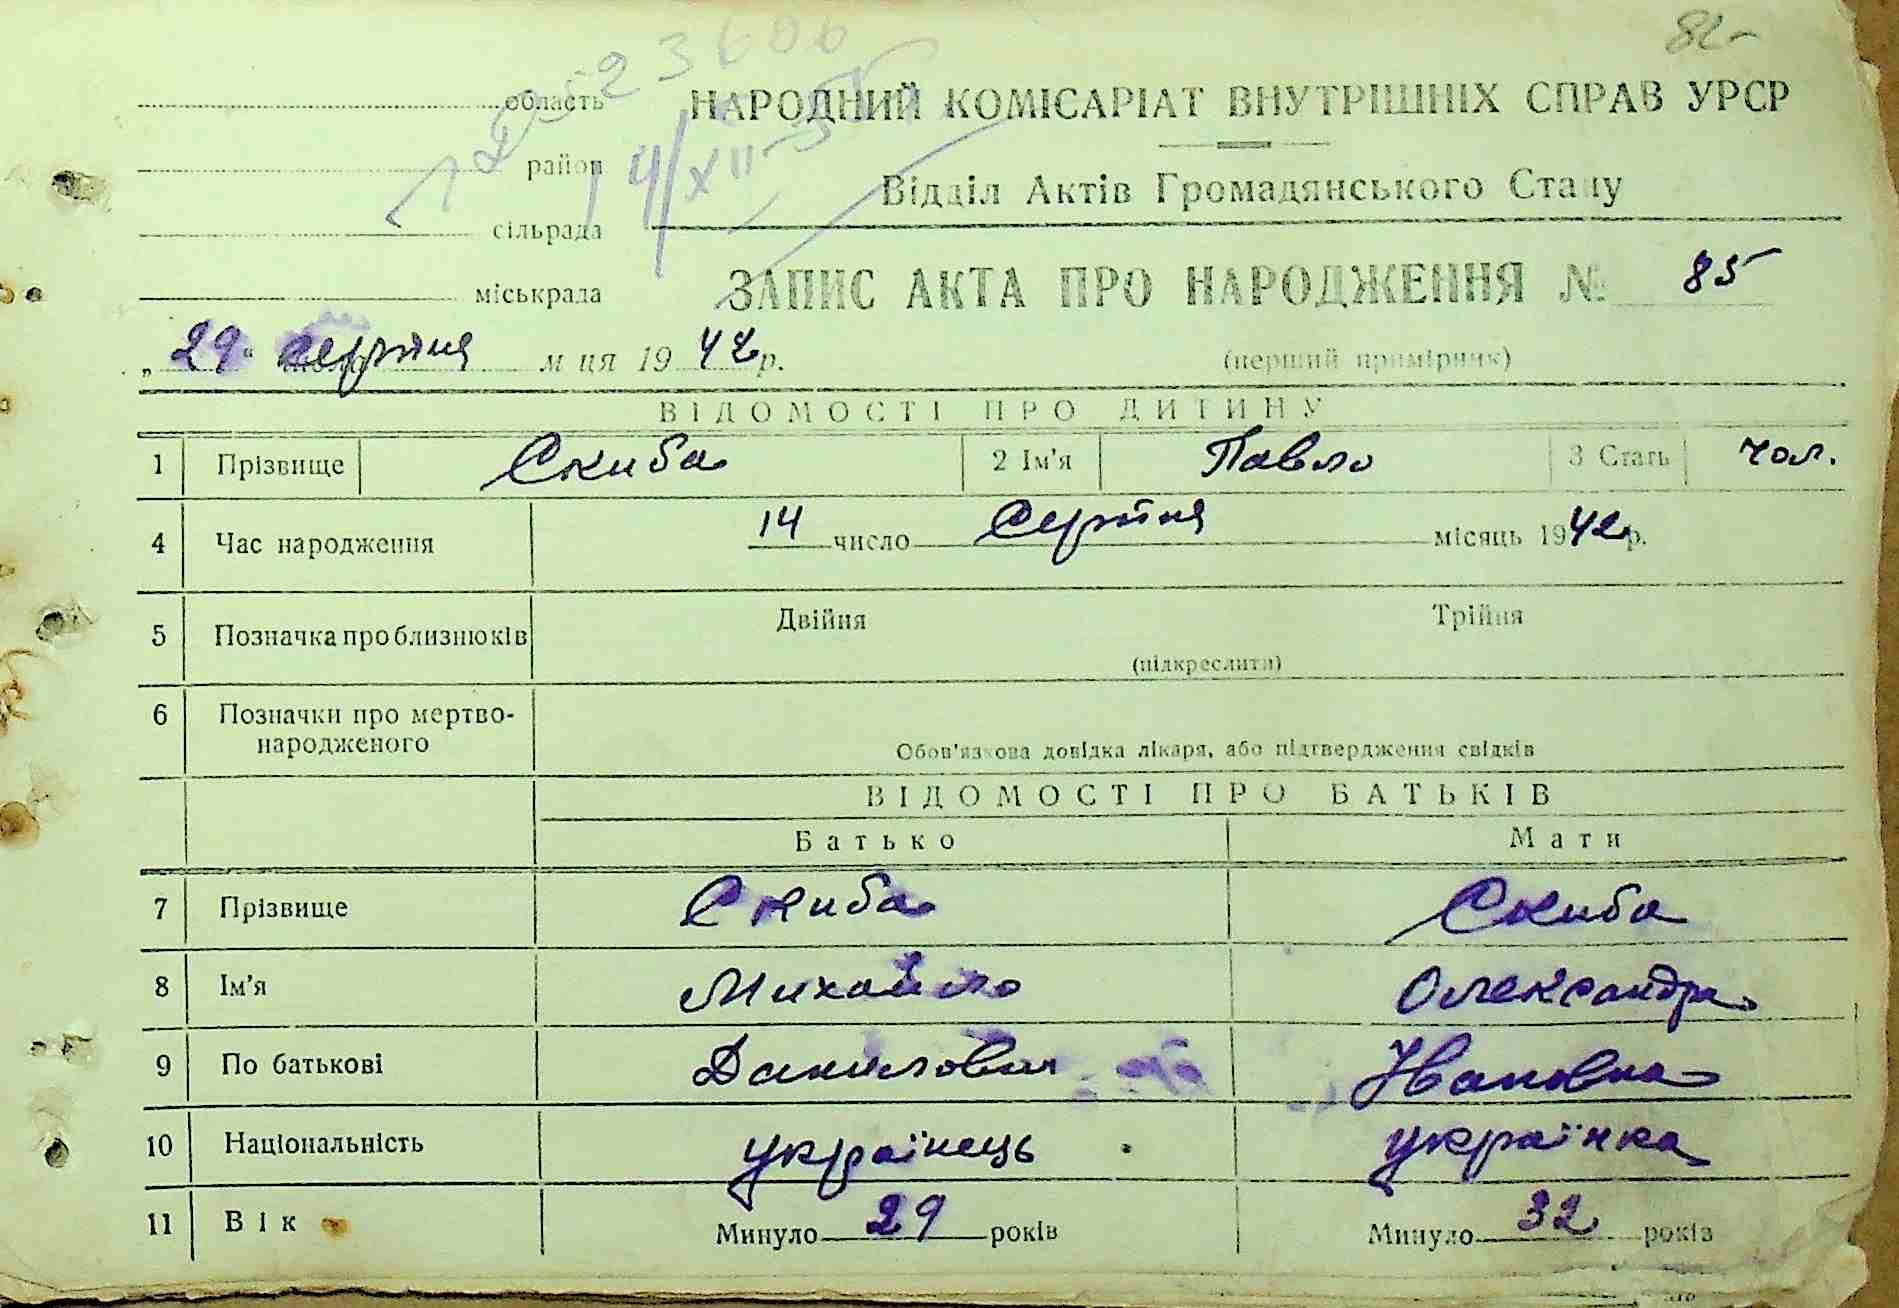 82
область
НАРОДНИЙ КОМІСАРІАТ ВНУТРІШНІХ СПРАВ УРСР
район
4/XII
Відділ Актів Громадянського Стану
сільрада
міськрада
ЗАПИС АКТА ПРО НАРОДЖЕННЯ № 85
„29" серпня м ця 1942 р.
(перший примірник)
ВІДОМОСТІ ПРО ДИТИНУ
1 Прізвище Скиба 2 Ім'я Павло 3 Стать чол.
4 Час народження 14 число Серпня місяць 1942 р.
5 Позначка про близнюків Двійня Трійня
(підкреслити)
6 Позначки про мертво-
народженого
Обов'язкова довідка лікаря, або підтвердження свідків
ВІДОМОСТІ ПРО БАТЬКІВ
Батько Мати
7 Прізвище Скиба Скиба
8 Ім'я Михайло Олександра
9 По батькові Данилович Ивановна
10 Національність українець українка
11 Вік Минуло 29 років Минуло 32 років